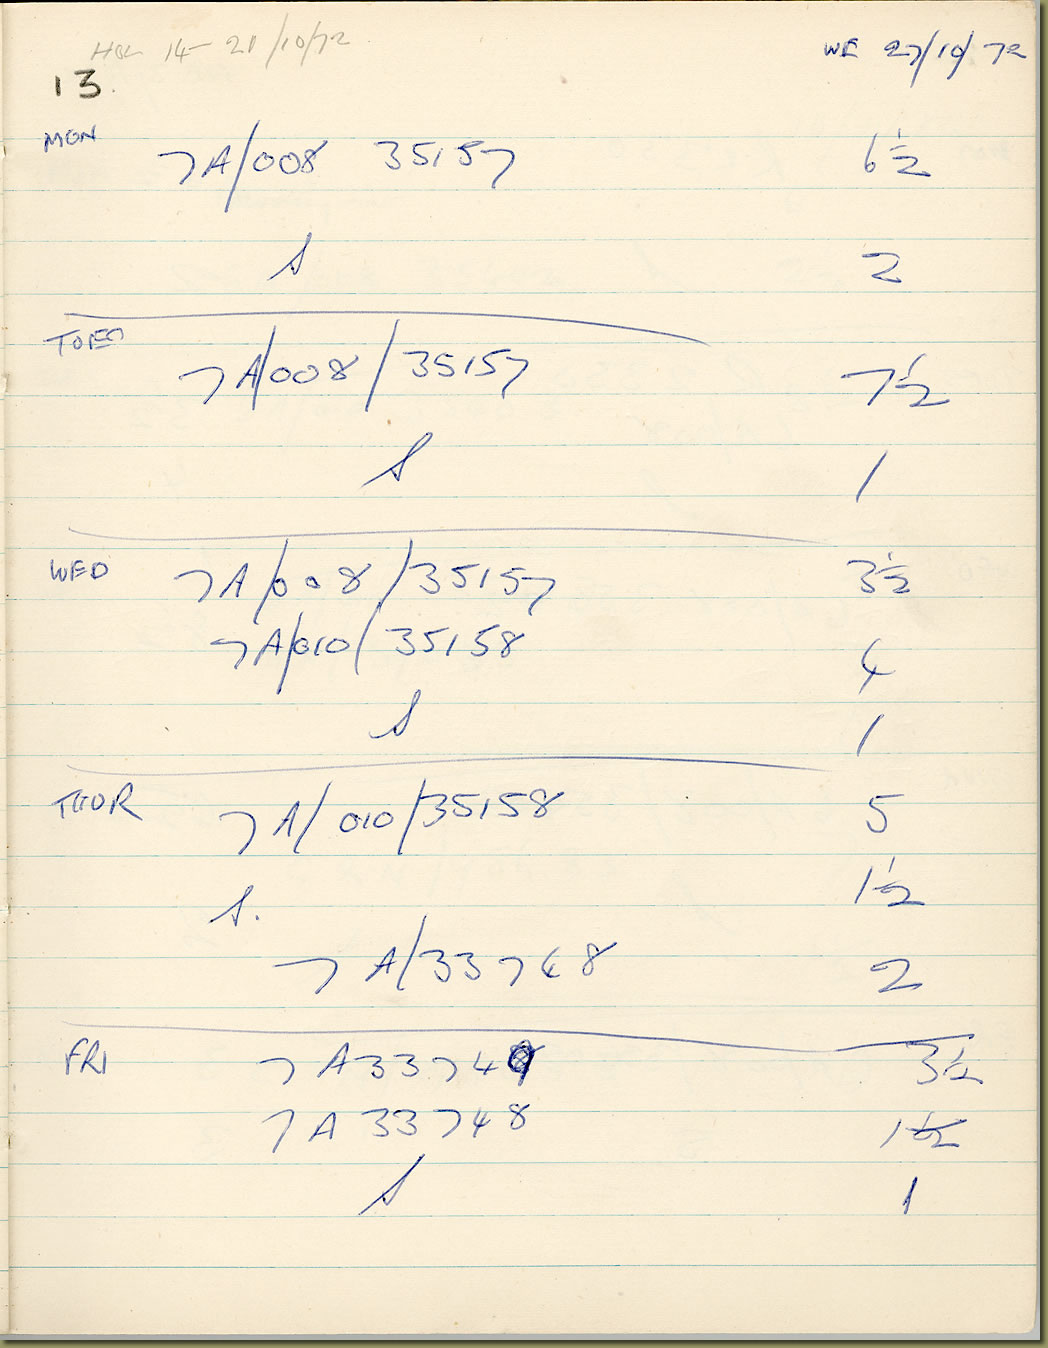 HOL 14-21/10/72
WE 27/10/72
13
MON 7A/008 35157 6½
S 2
TUES 7A/008/35157 7½
S 1
WED 7A/008/35157 3½
7A/010/35158 4
S 1
THUR 7A/010/35158 5
S. 1½
7A/33748 2
FRI 7A33749 3½
7A33748 1½
S 1